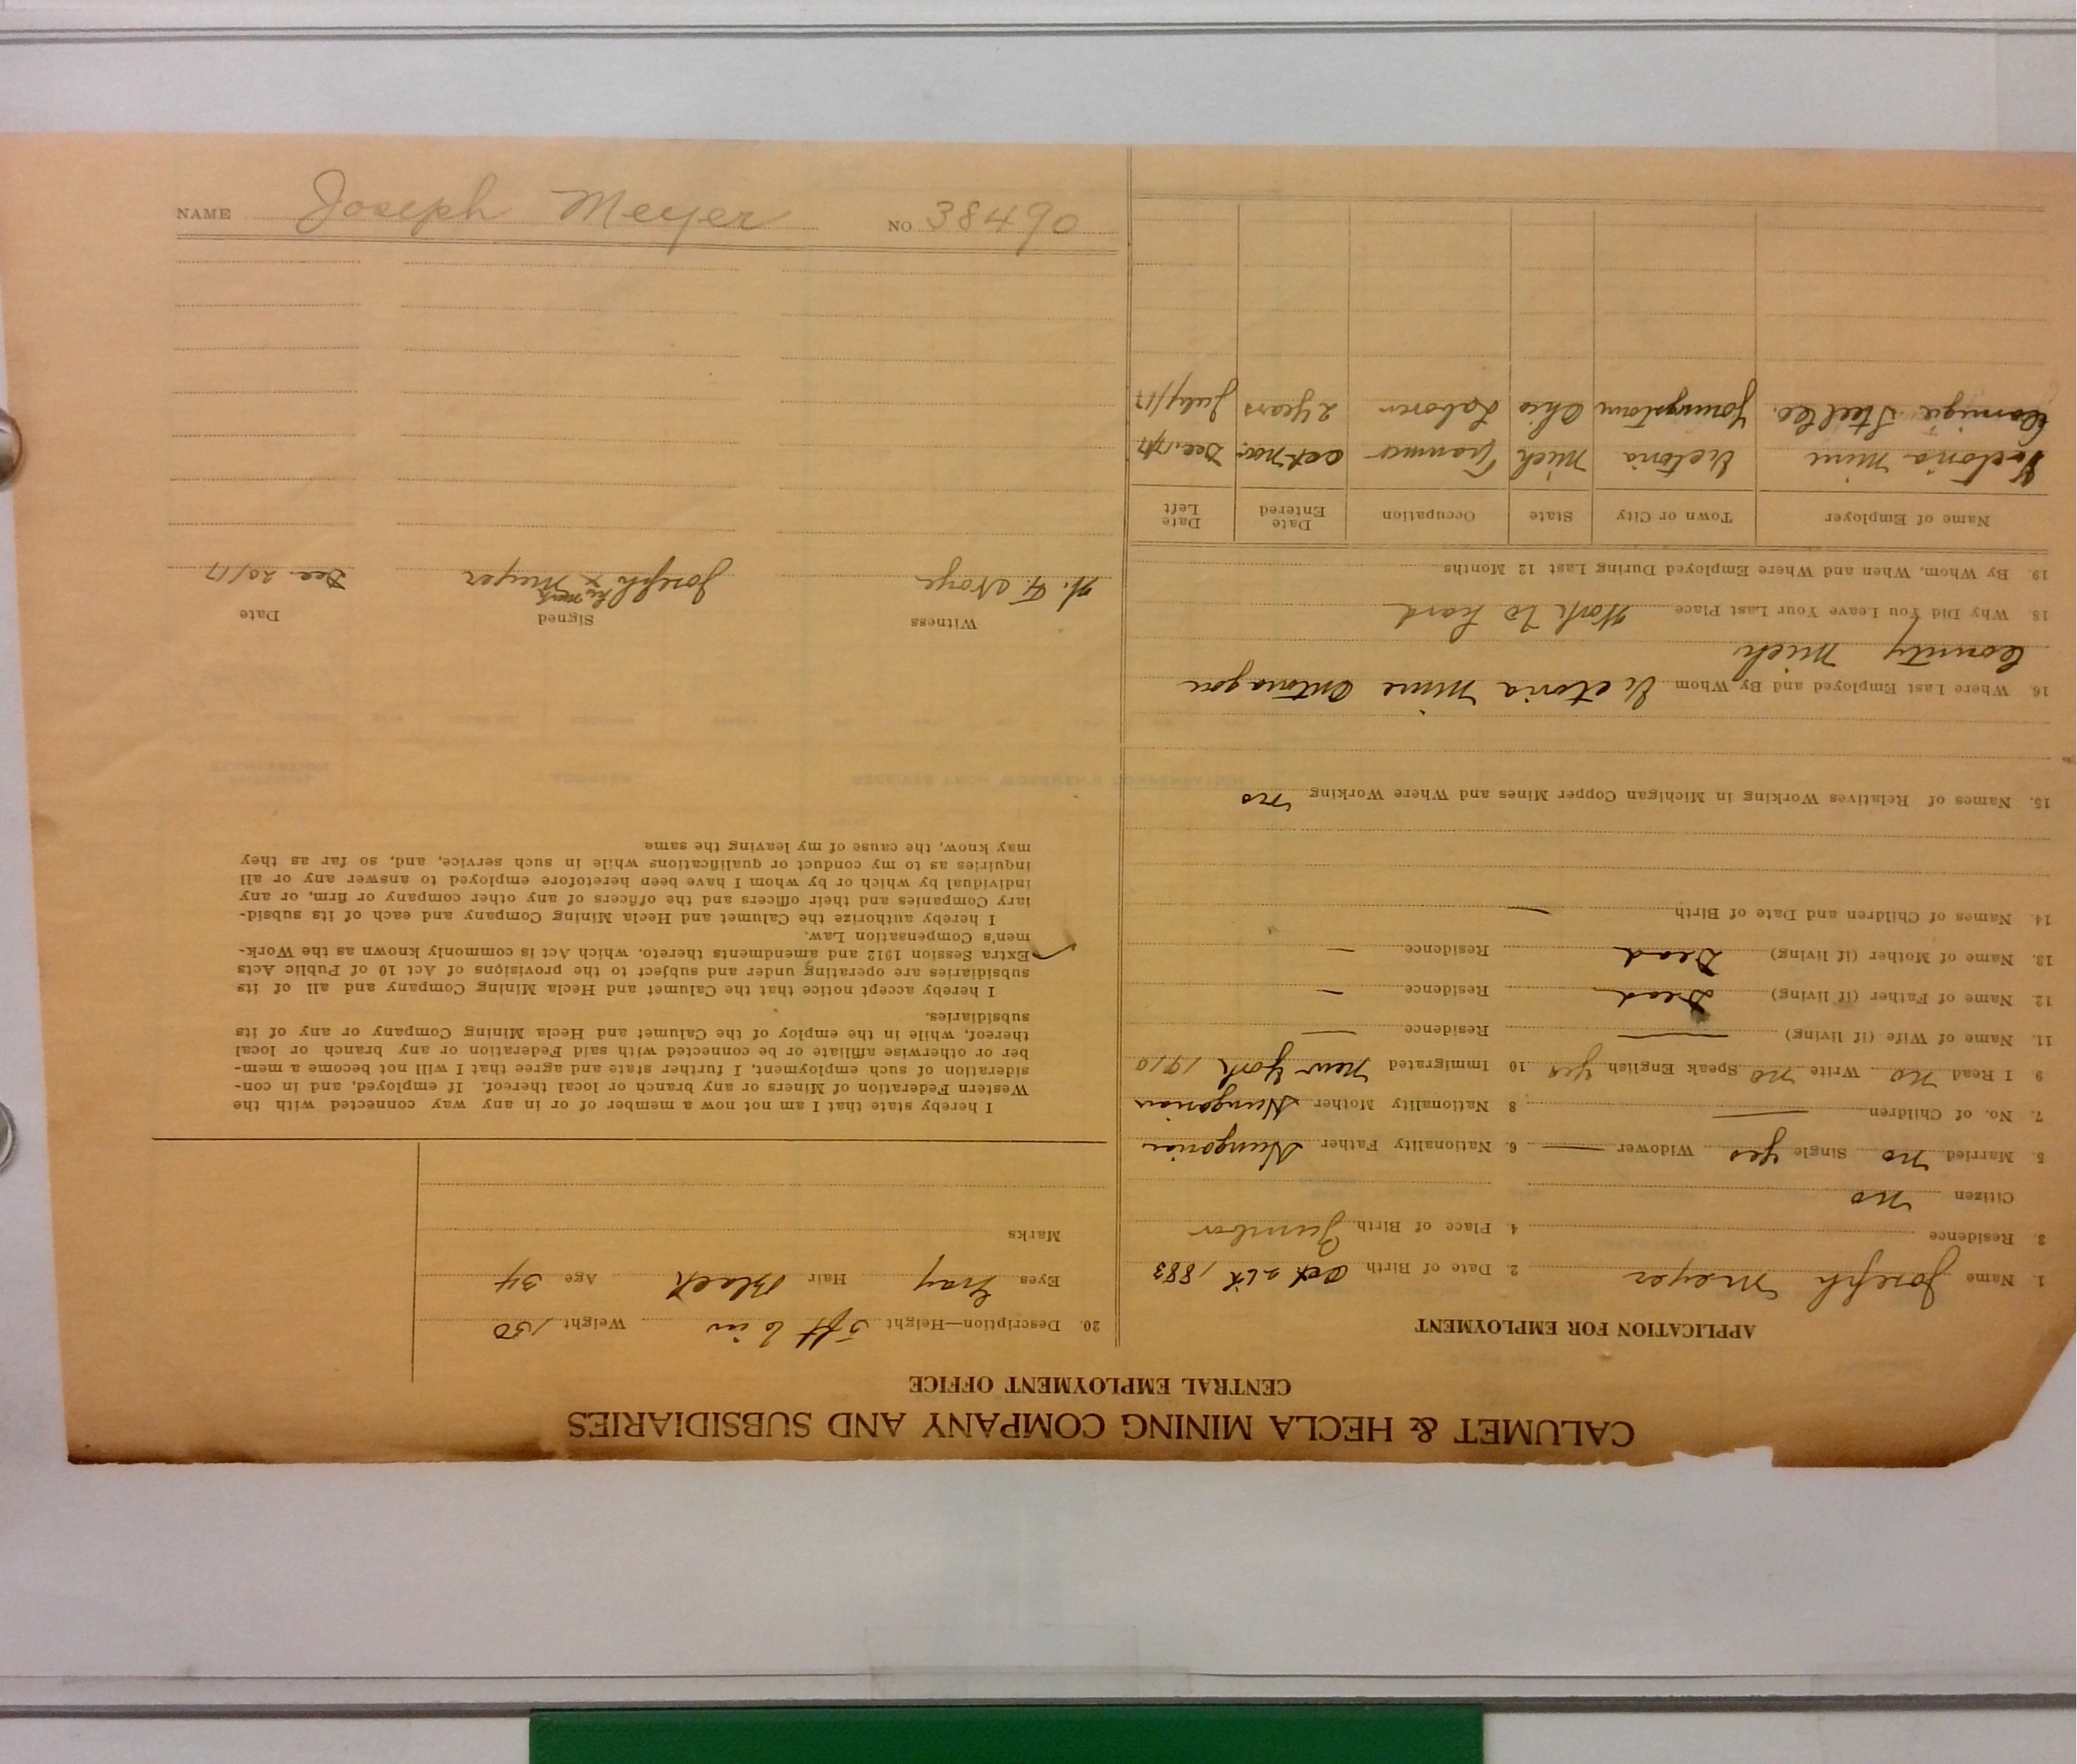 CALUMET & HECLA MINING COMPANY AND SUBSIDIARIES
CENTRAL EMPLOYMENT OFFICE
APPLICATION FOR EMPLOYMENT
1. Name Joseph Meyer 2. Date of Birth Oct 1883
3. Residence 4. Place of Birth
Citizen no
5. Married no Single yes Widower — 6. Nationality Father Hungarian
7. No. of Children — 8 Nationality Mother Hungarian
9 I Read no Write no Speak English yes 10 Immigrated New York 1910
11. Name of Wife (if living) — Residence —
12. Name of Father (if living) Dead Residence —
13. Name of Mother (if living) Dead Residence —
14. Names of Children and Date of Birth —
15. Names of Relatives Working in Michigan Copper Mines and Where Working no
16. Where Last Employed and By Whom Victoria Mine Ontonagon
County Mich
18. Why Did You Leave Your Last Place Work to hard
19. By Whom, When and Where Employed During Last 12 Months
Name of Employer Town or City State Occupation Date Entered Date Left
Victoria Mine Victoria Mich Trammer Dec 17/17
Carnigie Steel Co. Youngstown Ohio Laborer 2 years July/17
20. Description—Height 5 ft 6 in Weight 150
Eyes Gray Hair Black Age 34
Marks
I hereby state that I am not now a member of or in any way connected with the
Western Federation of Miners or any branch or local thereof. If employed, and in con-
sideration of such employment, I further state and agree that I will not become a mem-
ber or otherwise affiliate or be connected with said Federation or any branch or local
thereof, while in the employ of the Calumet and Hecla Mining Company or any of its
subsidiaries.
I hereby accept notice that the Calumet and Hecla Mining Company and all of its
subsidiaries are operating under and subject to the provisions of Act 10 of Public Acts
Extra Session 1912 and amendments thereto, which Act is commonly known as the Work-
men's Compensation Law.
I hereby authorize the Calumet and Hecla Mining Company and each of its subsid-
iary Companies and their officers and the officers of any other company or firm, or any
individual by which or by whom I have been heretofore employed to answer any or all
inquiries as to my conduct or qualifications while in such service, and, so far as they
may know, the cause of my leaving the same
Witness Signed Date
Joseph x Meyer Dec 20/17
his mark
NAME Joseph Meyer NO 38490